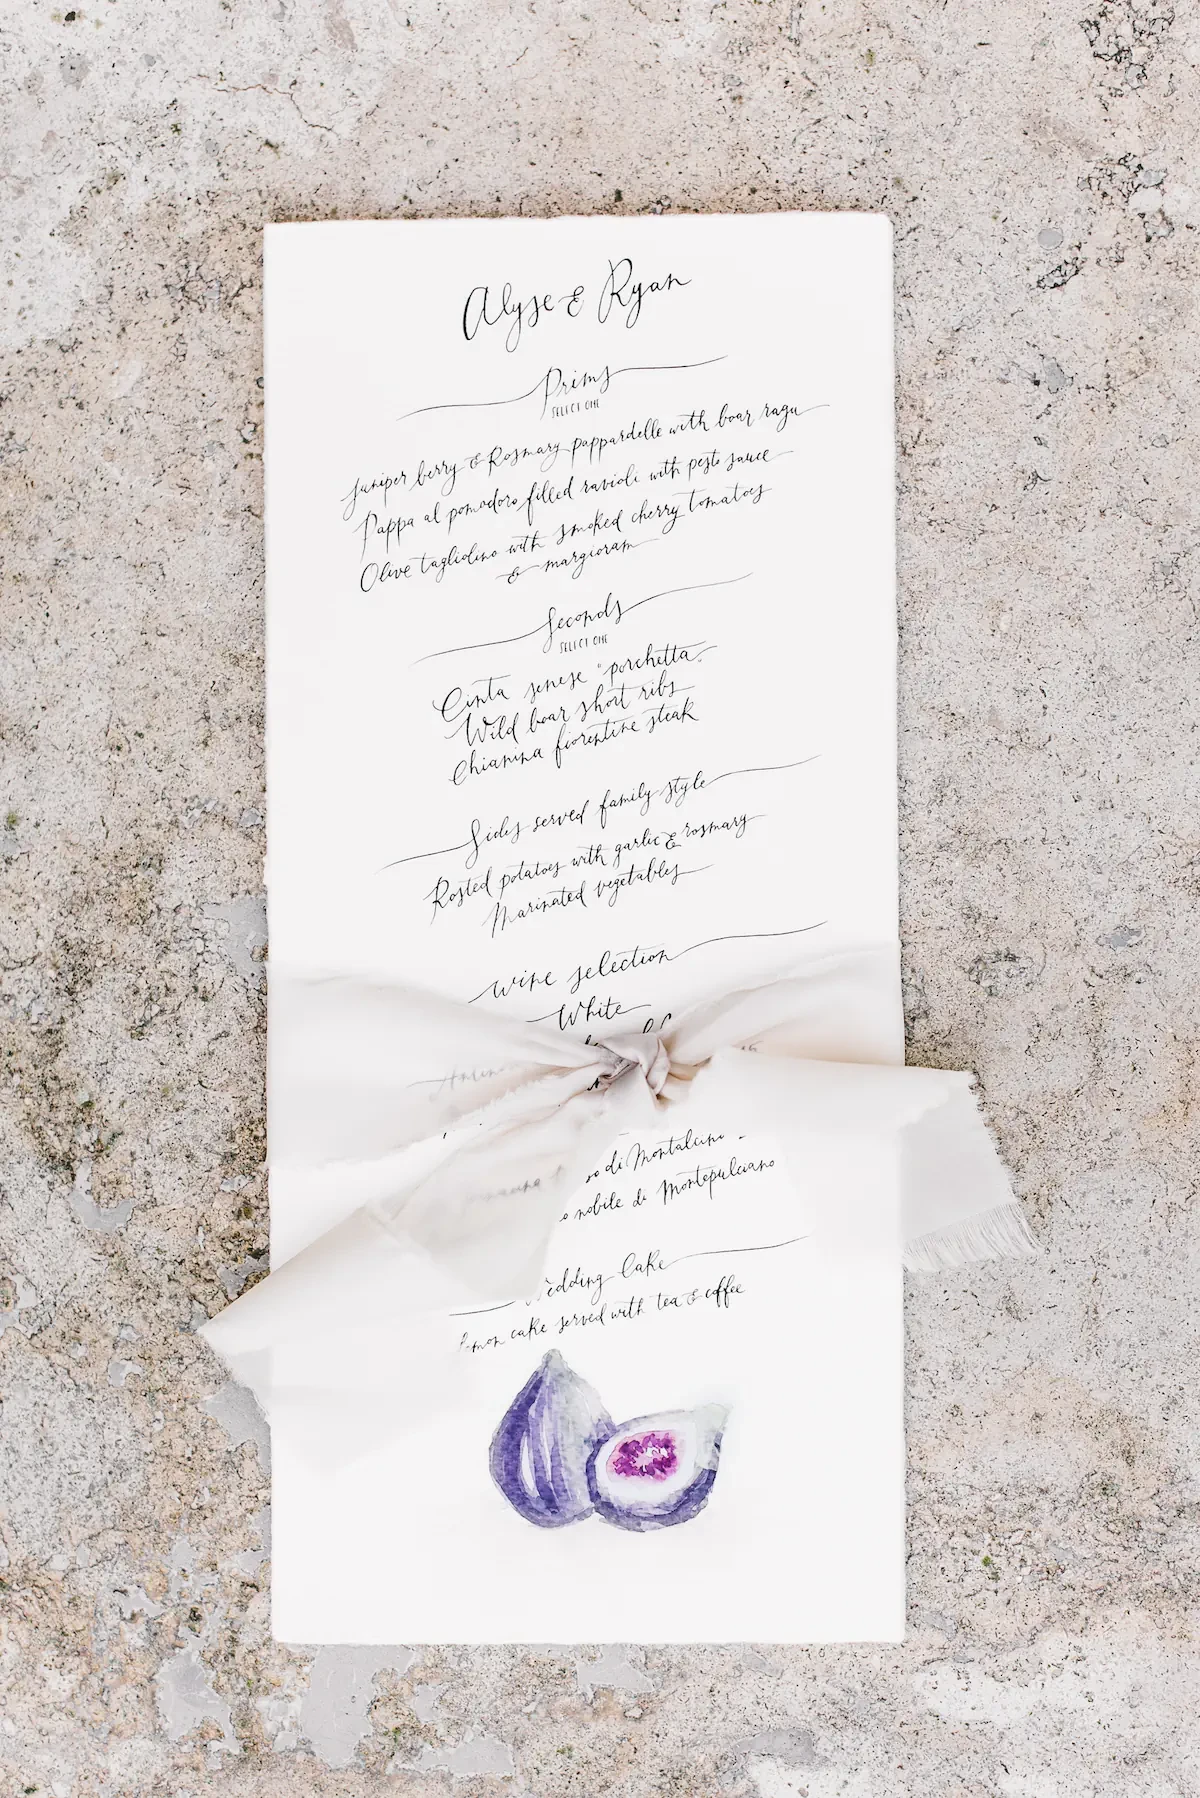 Alyse & Ryan
Prims
SELECT ONE
Juniper berry & Rosmary pappardelle with boar ragu
Pappa al pomodoro filled ravioli with pesto sauce
Olive tagliolino with smoked cherry tomatoes
& margioram
Seconds
SELECT ONE
Cinta senese "porchetta"
Wild boar short ribs
Chianina fiorentine steak
Sides served family style
Rosted potatoes with garlic & rosmary
Marinated vegetables
Wine selection
White
di Montalcino
nobile di Montepulciano
Wedding Cake
cake served with tea & coffee